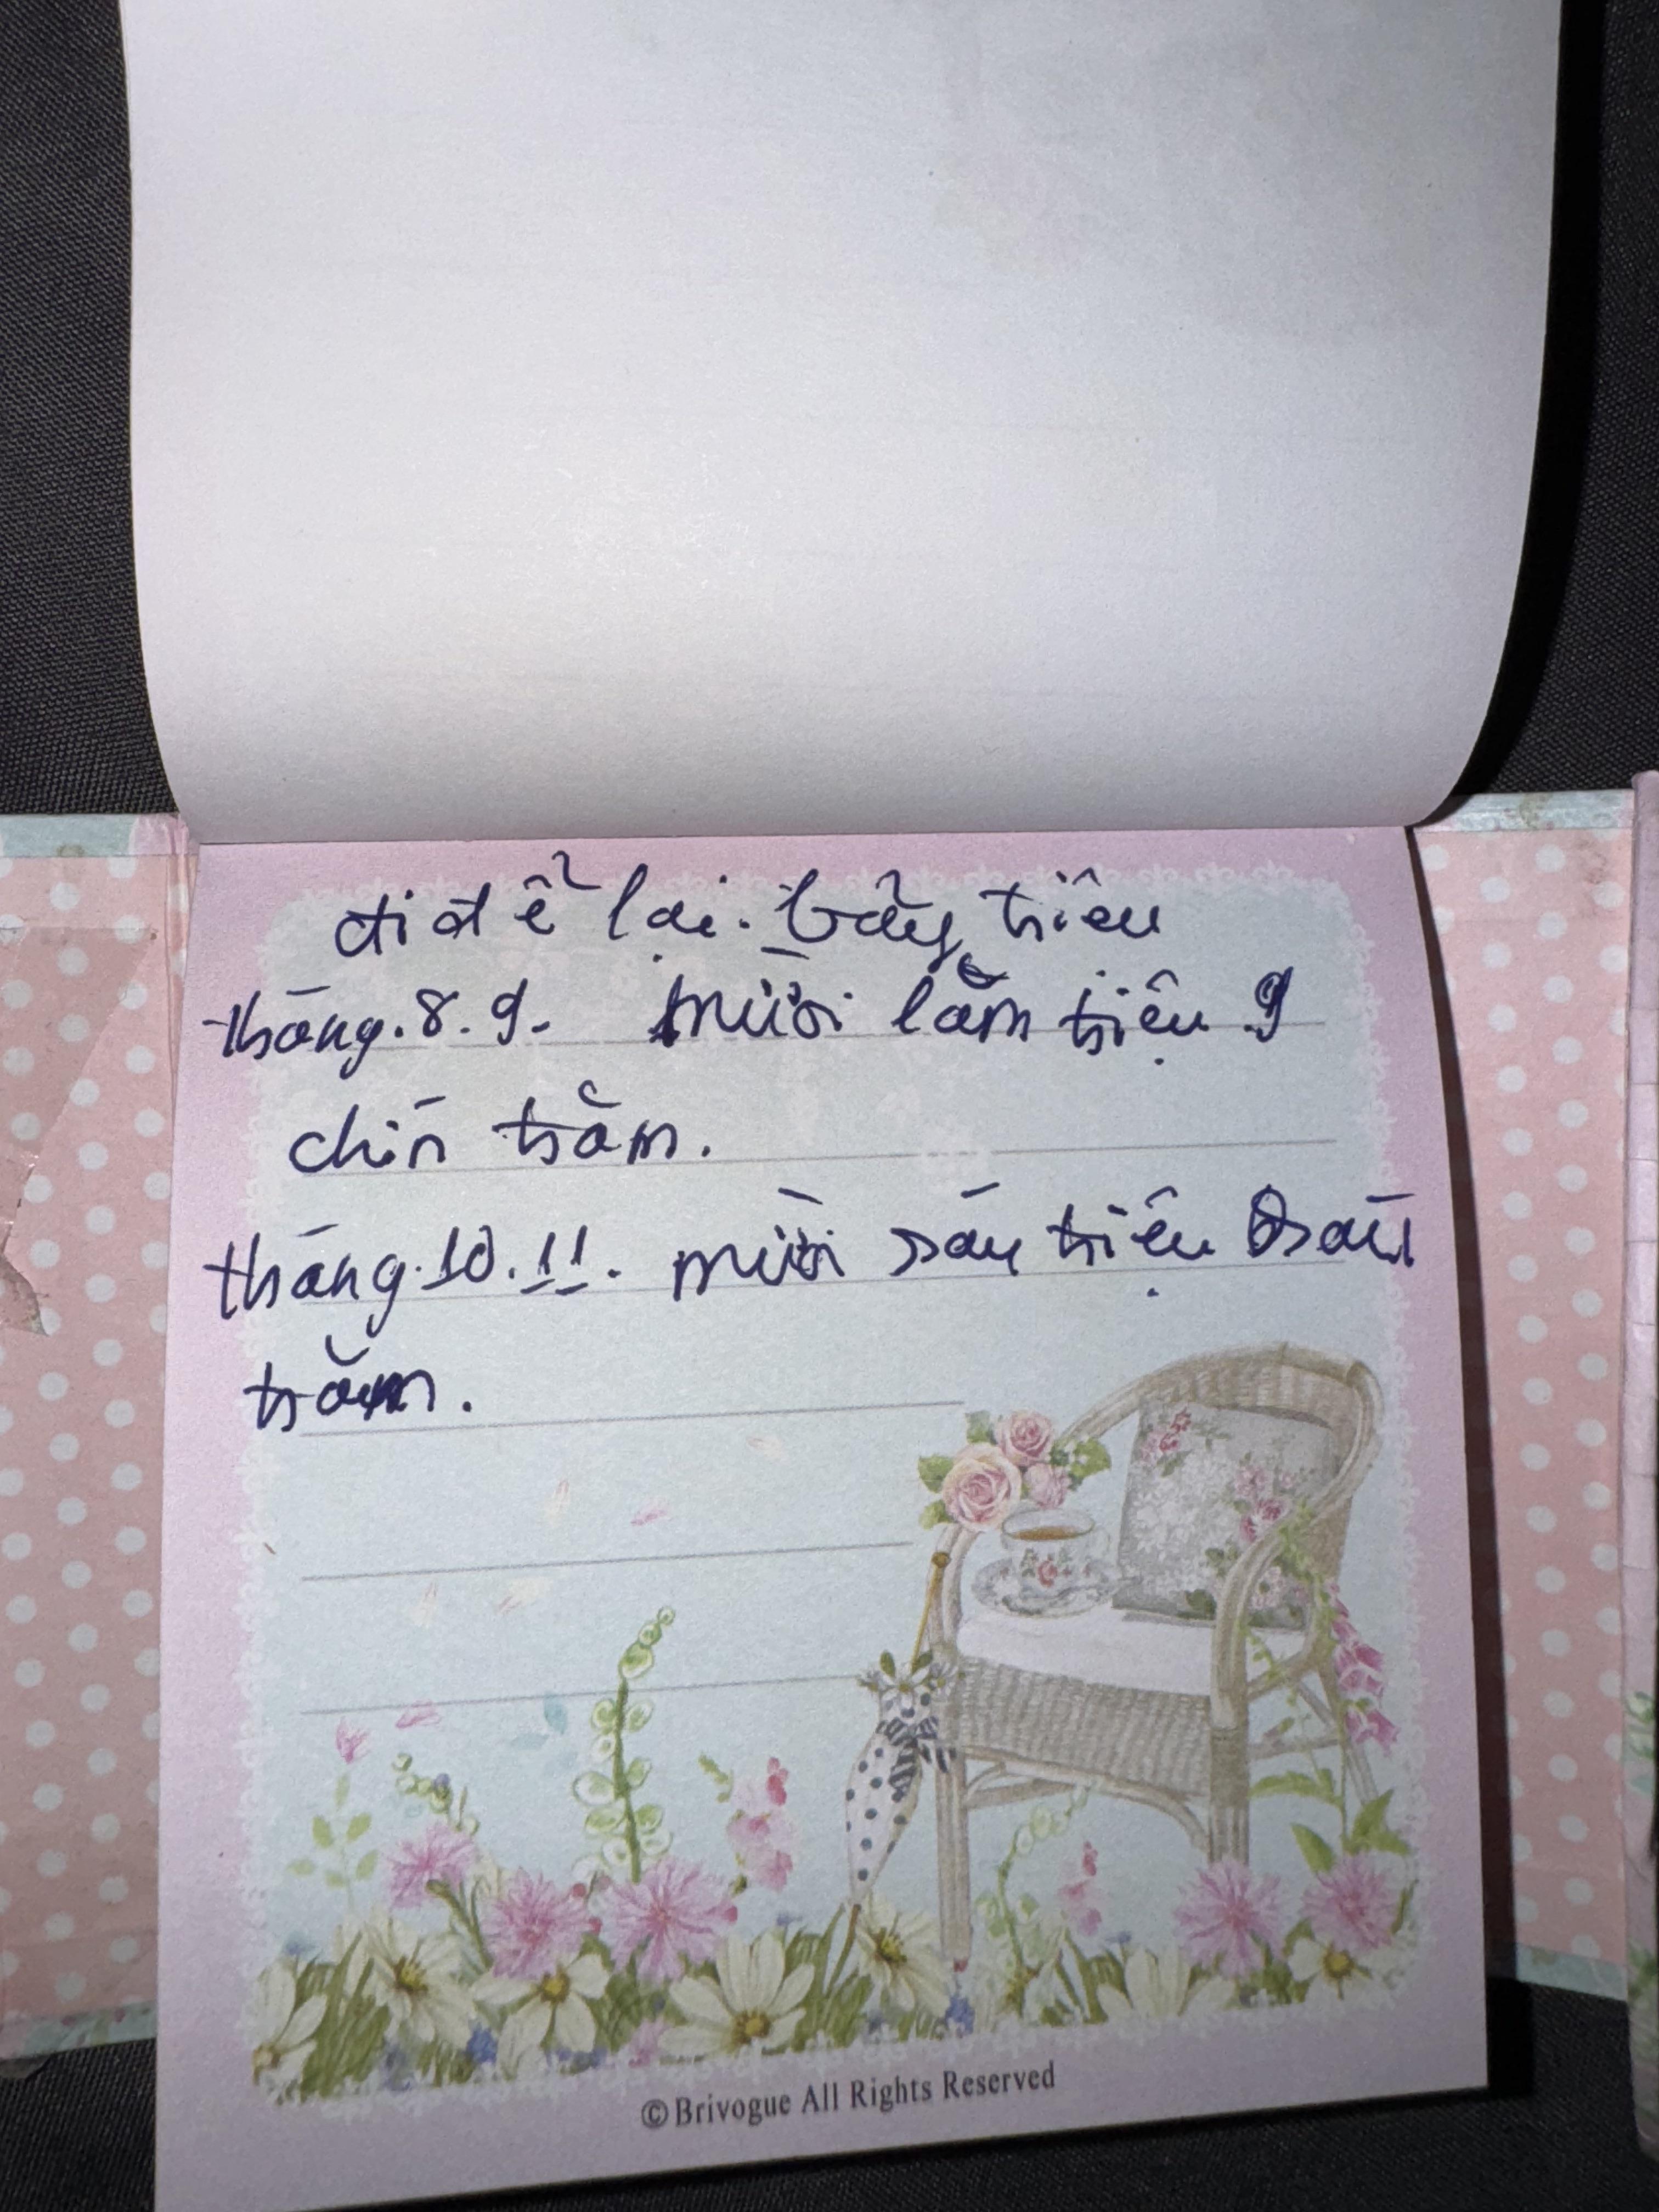 đi để lại. bảy triêu
tháng. 8. 9. mười lăm triệu 9
chín trăm.
tháng. 10. 11. mười sáu triệu sáu
trăm.
©Brivogue All Rights Reserved